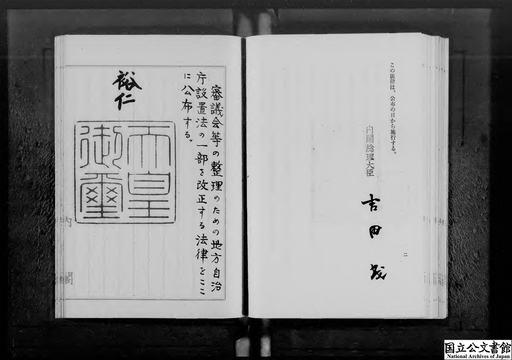 この法律は、公布の日から施行する。
内閣総理大臣
吉田茂
二
審議会等の整理のための地方自治
庁設置法の一部を改正する法律をここ
に公布する。
裕仁
天皇
御璽
内閣
国立公文書館
National Archives of Japan